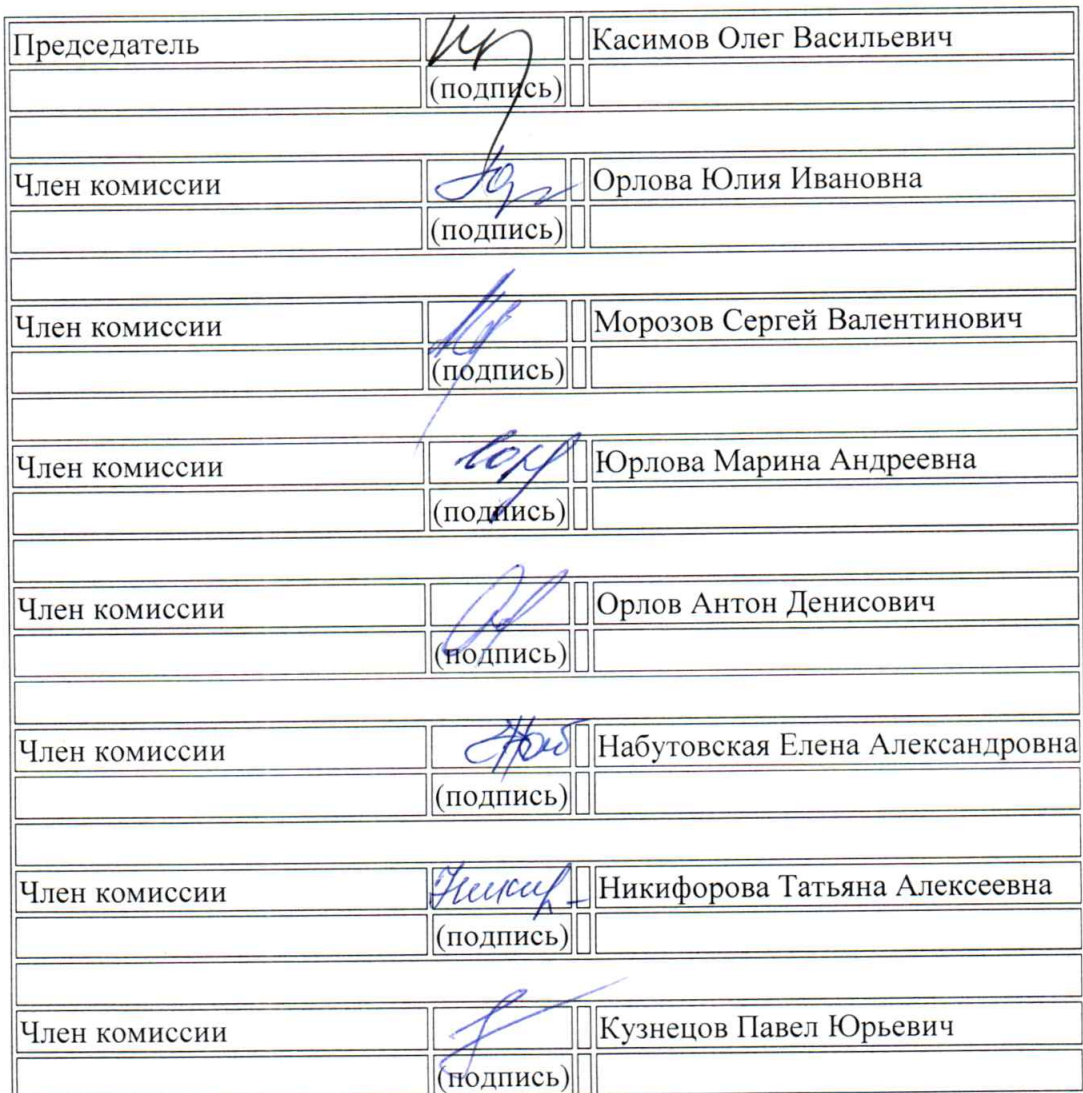 Председатель Касимов Олег Васильевич
(подпись)
Член комиссии Орлова Юлия Ивановна
(подпись)
Член комиссии Морозов Сергей Валентинович
(подпись)
Член комиссии Юрлова Марина Андреевна
(подпись)
Член комиссии Орлов Антон Денисович
(подпись)
Член комиссии Набутовская Елена Александровна
(подпись)
Член комиссии Никифорова Татьяна Алексеевна
(подпись)
Член комиссии Кузнецов Павел Юрьевич
(подпись)